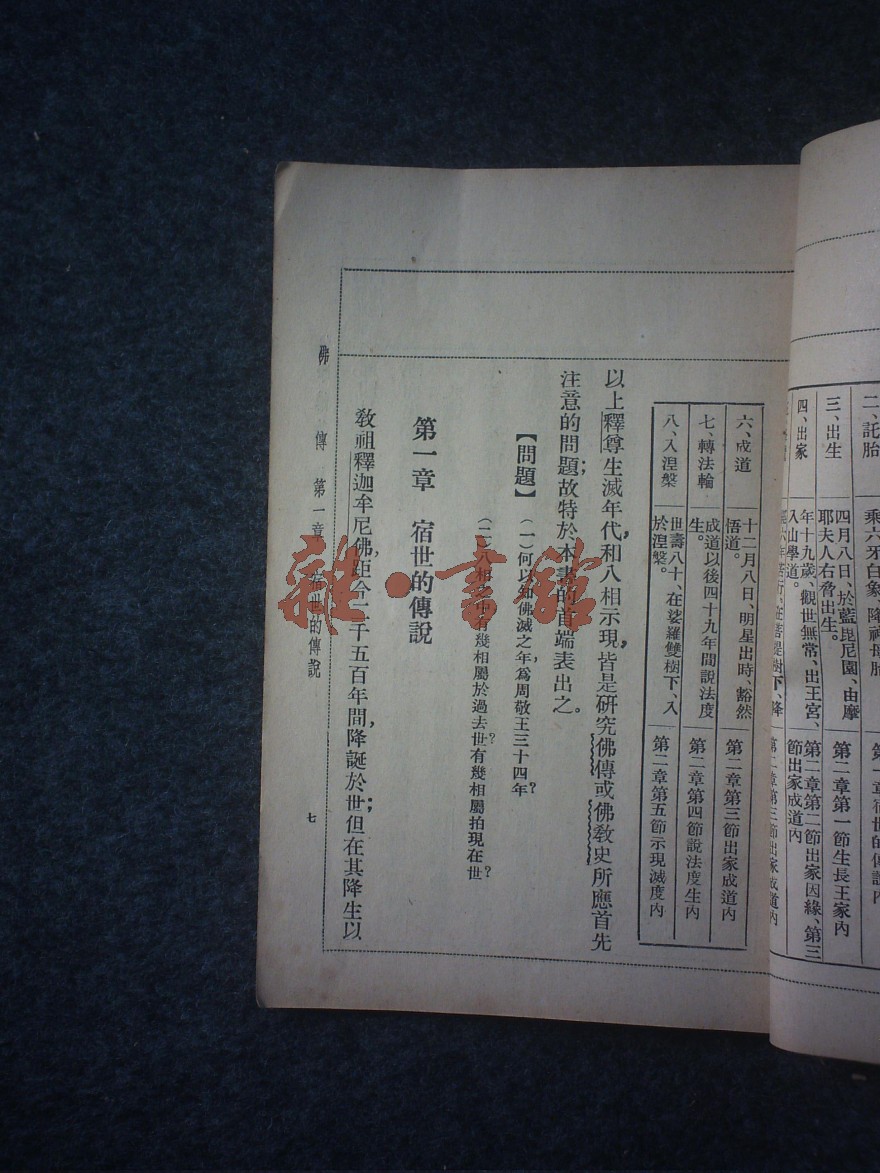 二、託胎
乘六牙白象、降神母胎
三、出生
四月八日、於藍毘尼園、由摩
耶夫人右脅出生。
第二章第一節生長王家內
四、出家
年十九歲、觀世無常、出王宮、
入山學道。
第二章第二節出家因緣、第三
節出家成道內
六年苦行、在菩提樹下、降
第二章第三節出家成道內
六、成道
十二月八日、明星出時、豁然
悟道。
第二章第三節出家成道內
七、轉法輪
成道以後四十九年間說法度
生。
第二章第四節說法度生內
八、入涅槃
世壽八十、在娑羅雙樹下、入
於涅槃。
第二章第五節示現滅度內
以上釋尊生滅年代，和八相示現，皆是研究佛傳或佛教史所應首先
注意的問題；故特於本書的首端表出之。
【問題】
（一）何以知佛滅之年，爲周敬王三十四年？
（二）八相之中有幾相屬於過去世？有幾相屬拍現在世？
第一章 宿世的傳說
教祖釋迦牟尼佛，距今二千五百年間，降誕於世；但在其降生以
佛 傳 第一章 宿世的傳說
七
雜·書館